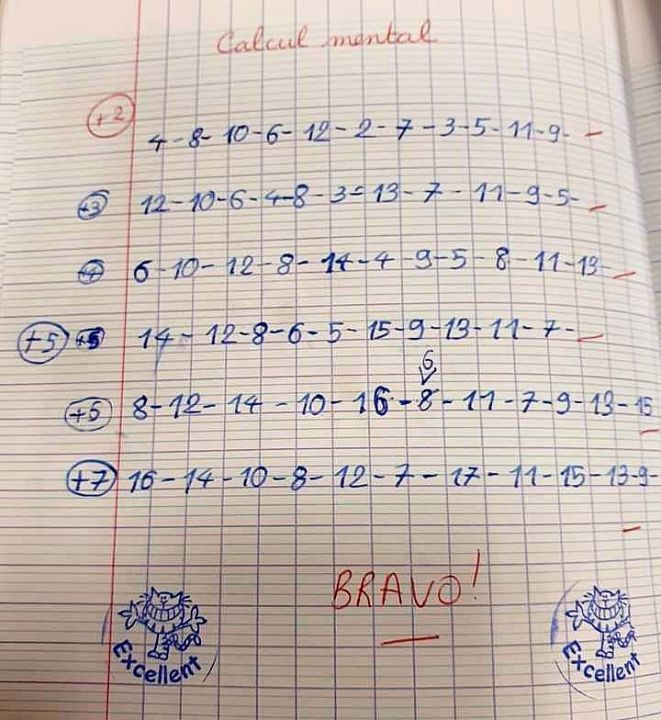 Calcul mental
+2 4-8-10-6-12-2-7-3-5-11-9-
+3 12-10-6-4-8-3=13-7-11-9-5-
+4 6-10-12-8-14-4-9-5-8-11-13-
+5 +5 14-12-8-6-5-15-9-13-11-7-
6
+6 8-12-14-10-16-8-11-7-9-13-15
+7 16-14-10-8-12-7-17-11-15-13-9-
BRAVO!
Excellent
Excellent